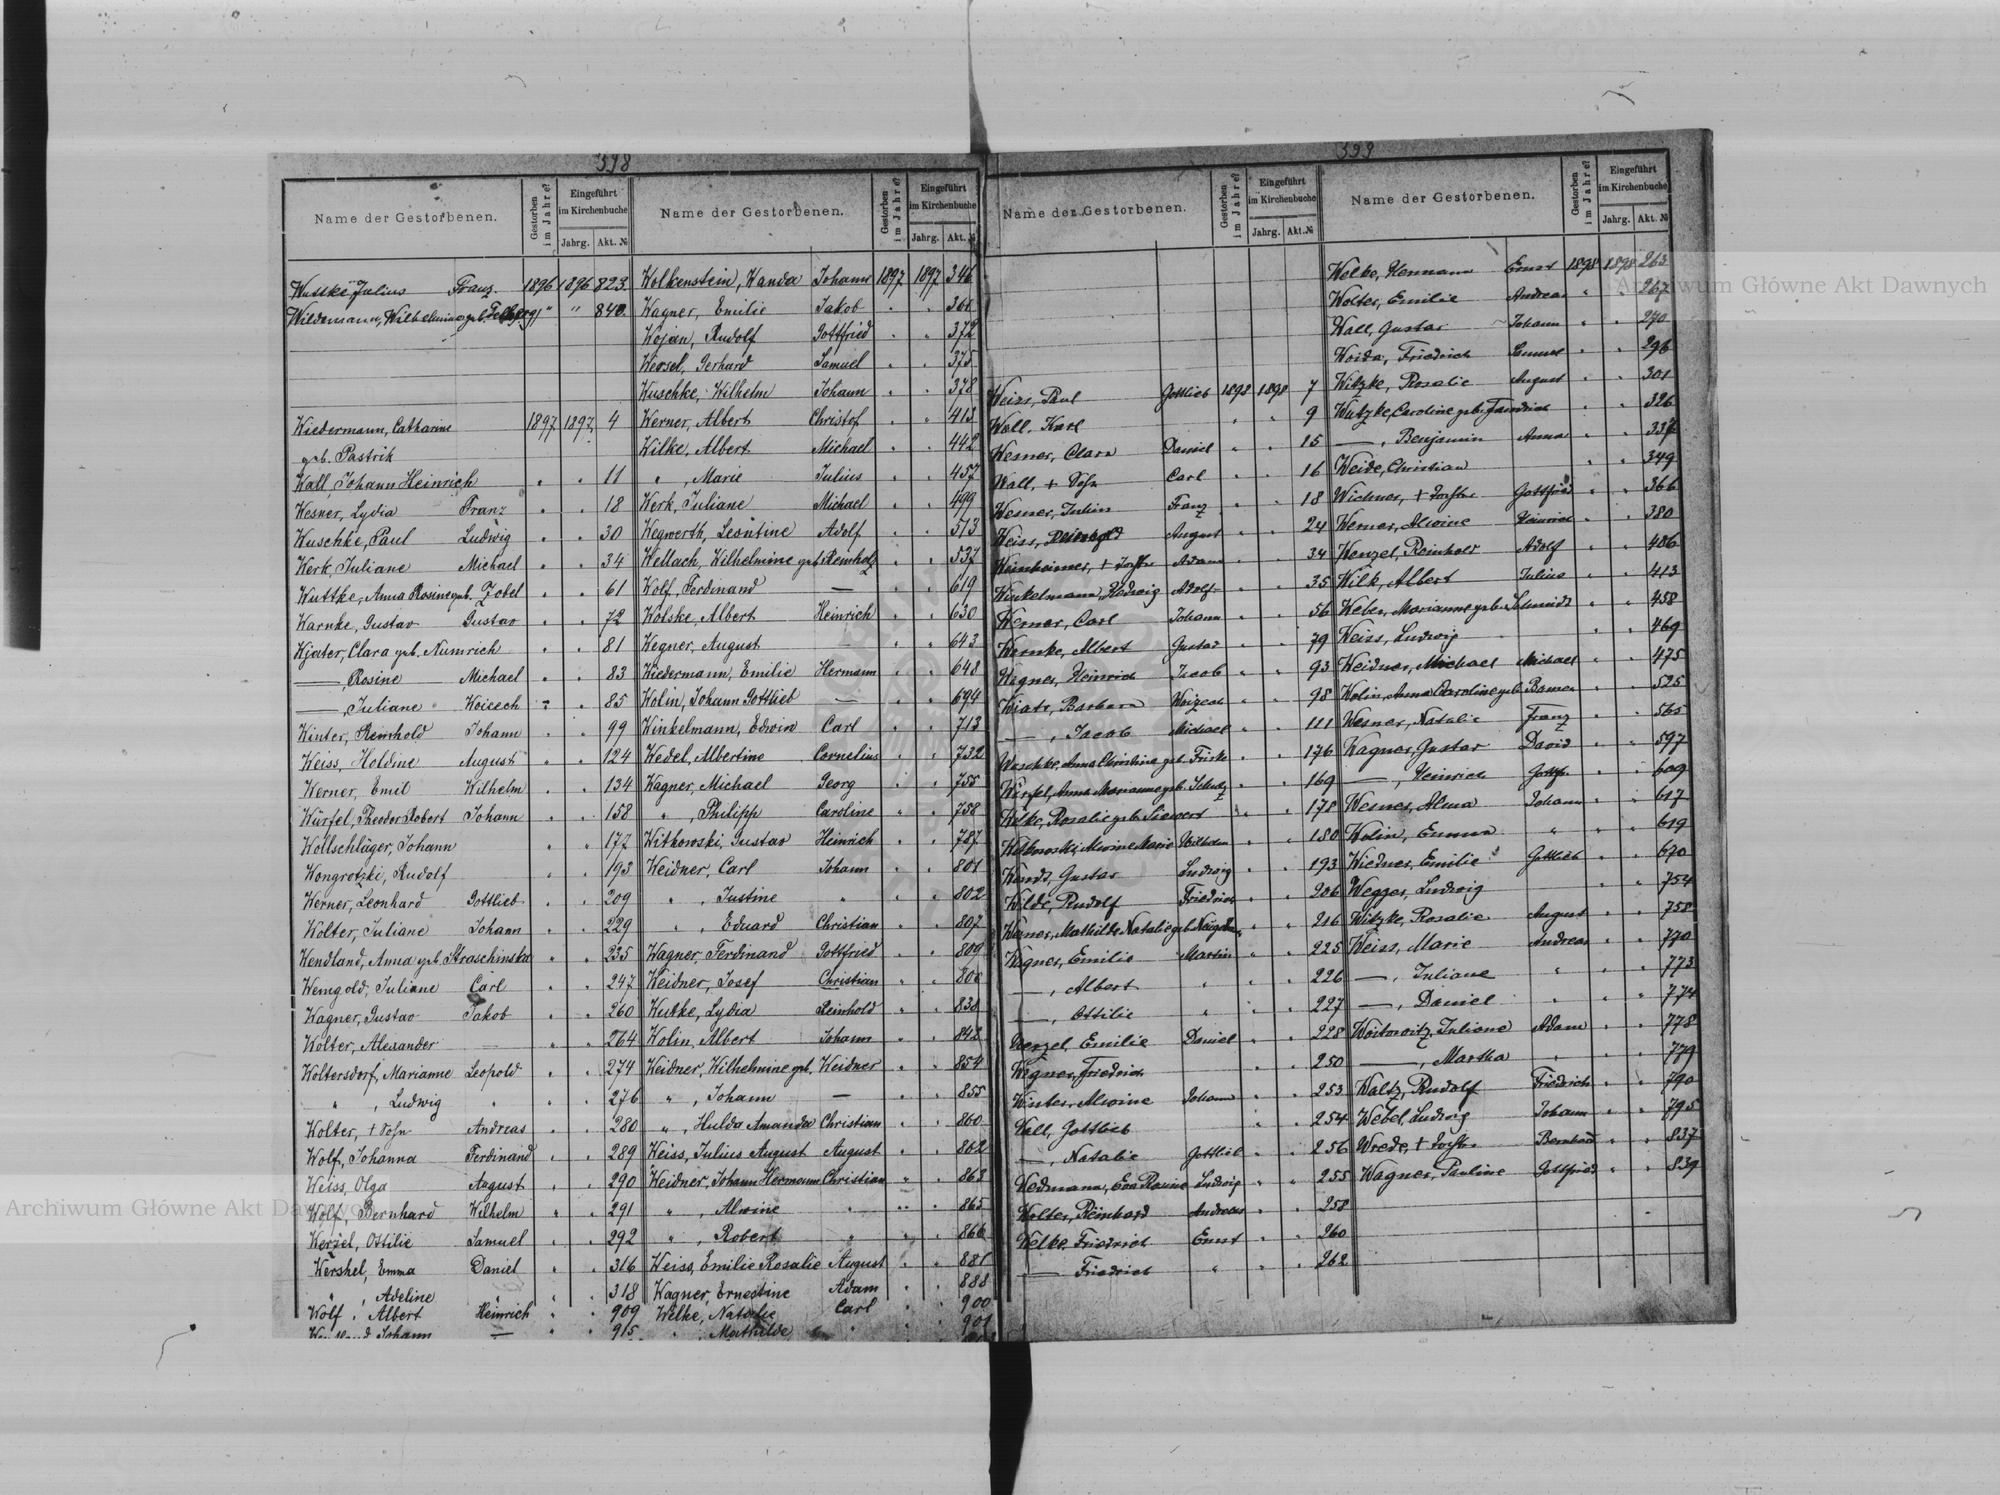 598
Name der Gestorbenen.
Gestorben im Jahre?
Eingeführt im Kirchenbuche
Jahrg.
Akt. №
Name der Gestorbenen.
Gestorben im Jahre?
Eingeführt im Kirchenbuche
Jahrg.
Akt. №
Wuttke Julius Franz 1896 1896 823
Wildemann, Wilhelmine geb. " " 840
Wiedermann, Catharine 1897 1897 4
geb. Pastrik
Wall, Johann Heinrich 11
Wesner, Lydia Franz 18
Wuschke, Paul Ludwig 30
Werk, Juliane Michael 34
Wuttke, Anna Rosine geb. Zobel 61
Warnke, Gustav Gustav 72
Wjater, Clara geb. Numrich 81
—, Rosine Michael 83
—, Juliane Woicech 85
Winter, Reinhold Johann 99
Weiss, Holdine August 124
Werner, Emil Wilhelm 134
Würfel, Theodor Robert Johann 158
Wollschläger, Johann 177
Wongrotzki, Rudolf 193
Werner, Leonhard Gottlieb 209
Wolter, Juliane Johann 229
Wendland, Anna geb. Straschinska 235
Weingold, Juliane Carl 247
Wagner, Gustav Jakob 260
Wolter, Alexander — 264
Woltersdorf, Marianne Leopold 274
" , Ludwig " 276
Wolter, + Sohn Andreas 280
Wolf, Johanna Ferdinand 289
Weiss, Olga August 290
Wolf, Bernhard Wilhelm 291
Werzel, Ottilie Samuel 292
Wershel, Emma Daniel 316
" , Adeline " 318
Wolf, Albert Heinrich 909
Johann — 915
Wolkenstein, Wanda Johann 1897 1897 346
Wagner, Emilie Jakob 368
Wojan, Rudolf Gottfried 372
Wersel, Gerhard Samuel 375
Wuschke, Wilhelm Johann 378
Werner, Albert Christof 413
Wilke, Albert Michael 442
" , Marie Julius 457
Werk, Juliane Michael 499
Wegwerth, Leontine Adolf 513
Wellach, Wilhelmine geb. Remholz 537
Wolf, Ferdinand — 619
Wolske, Albert Heinrich 630
Wegner, August — 643
Wiedermann, Emilie Hermann 648
Wolin, Johann Gottlieb — 694
Winkelmann, Edwin Carl 713
Wedel, Albertine Cornelius 732
Wagner, Michael Georg 755
" , Philipp Caroline 758
Witkowski, Gustav Heinrich 787
Weidner, Carl Johann 801
" , Justine " 802
" , Eduard Christian 807
Wagner, Ferdinand Gottfried 809
Weidner, Josef Christian 808
Wutke, Lydia Reinhold 830
Wolin, Albert Johann 842
Weidner, Wilhelmine geb. Weidner 854
" , Johann — 855
" , Hulda Amanda Christian 860
Weiss, Julius August August 862
Weidner, Johann Hermann Christian 863
" , Alwine " 865
" , Robert " 866
Weiss, Emilie Rosalie August 881
Wagner, Ernestine Adam 888
Wilke, Natalie Carl 900
" , Mathilde " 901
599
Name der Gestorbenen.
Gestorben im Jahre?
Eingeführt im Kirchenbuche
Jahrg.
Akt. №
Name der Gestorbenen.
Gestorben im Jahre?
Eingeführt im Kirchenbuche
Jahrg.
Akt. №
Weiss, Paul Gottlieb 1898 1898 7
Wall, Karl 9
Wesner, Clara Daniel 15
Wall, + Sohn Carl 16
Wesner, Julius Franz 18
Weiss, August 24
Weinheimer, + Tochter Adam 34
Winkelmann, Hedwig Adolf 35
Werner, Carl Johann 56
Wernke, Albert Gustav 79
Wegner, Heinrich Jacob 93
Wiatr, Barbara 98
— , Jacob Michael 111
Waschke, Anna Christine geb. Friske 176
Würfel, Anna Marianne geb. Schulz 169
Wilke, Rosalie geb. Siewert 178
Alwine Marie Wilhelm 180
Wendt, Gustav Ludwig 193
Wilde, Rudolf Friedrich 206
Werner, Mathilde Natalie geb. 216
Wagner, Emilie Martin 225
— , Albert " 226
— , Ottilie " 227
Wenzel, Emilie Daniel 228
Wegner, Friedrich 250
Winter, Alwine Johann 253
Wall, Gottlieb 254
— , Natalie Gottlieb 256
Wedmann, Eva Rosine Ludwig 255
Wolter, Reinhard Andreas 258
Welke, Friedrich Ernst 260
— Friedrich " 262
Welke, Hermann Ernst 1898 1898 263
Wolter, Emilie Andreas 267
Wall, Gustav Johann 270
Woida, Friedrich Samuel 296
Witzke, Rosalie August 301
Wutzke, Caroline geb. 326
—, Benjamin Anna 337
Weide, Christian 349
Wichner, + Tochter Gottfried 366
Werner, Alwine Heinrich 380
Wenzel, Reinhold Adolf 406
Wilk, Albert Julius 413
Weber, Marianne geb. Schmidt 458
Weiss, Ludwig 469
Weidner, Michael Michael 475
Wolin, Anna Caroline geb. 525
Wesner, Natalie Franz 565
Wagner, Gustav David 597
— , Heinrich Gottfr. 609
Wesner, Alma Johann 617
Wolin, Emma " 619
Wiedner, Emilie Gottlieb 670
Wegger, Ludwig 754
Witzke, Rosalie August 758
Weiss, Marie Andreas 770
— , Juliane " 773
— , Daniel " 774
Woitowitz, Juliane Adam 778
— , Martha " 779
Waltz, Rudolf Friedrich 790
Webel, Ludwig Johann 795
Wrede, + Tochter Bernhard 837
Wagner, Pauline Gottfried 839
Archiwum Główne Akt Dawnych
Archiwum Główne Akt Dawnych